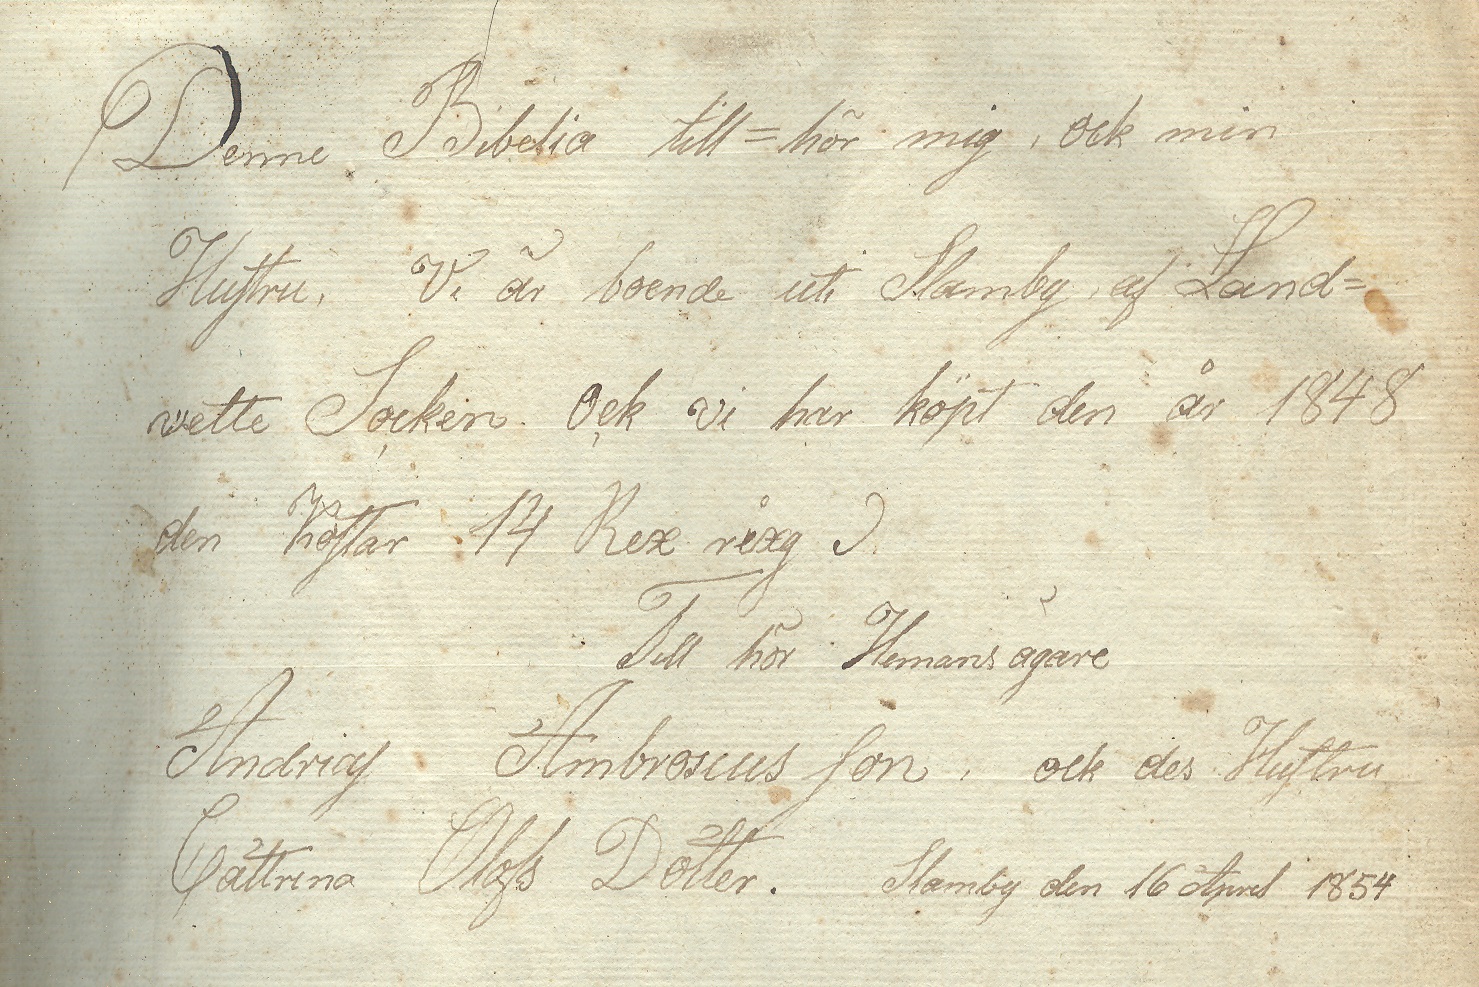 Denne Bibelia till=hör mig, ock min
Hustru, Vi är boende uti Stamby, af Land=
vette Socken. Ock vi har köpt den år 1848
den kostar 14 Rex rixg
Till hör Hemans ägare
Andrias Ambrosius son, ock des Hustru
Cattrina Olofs Dotter. Stamby den 16 April 1854